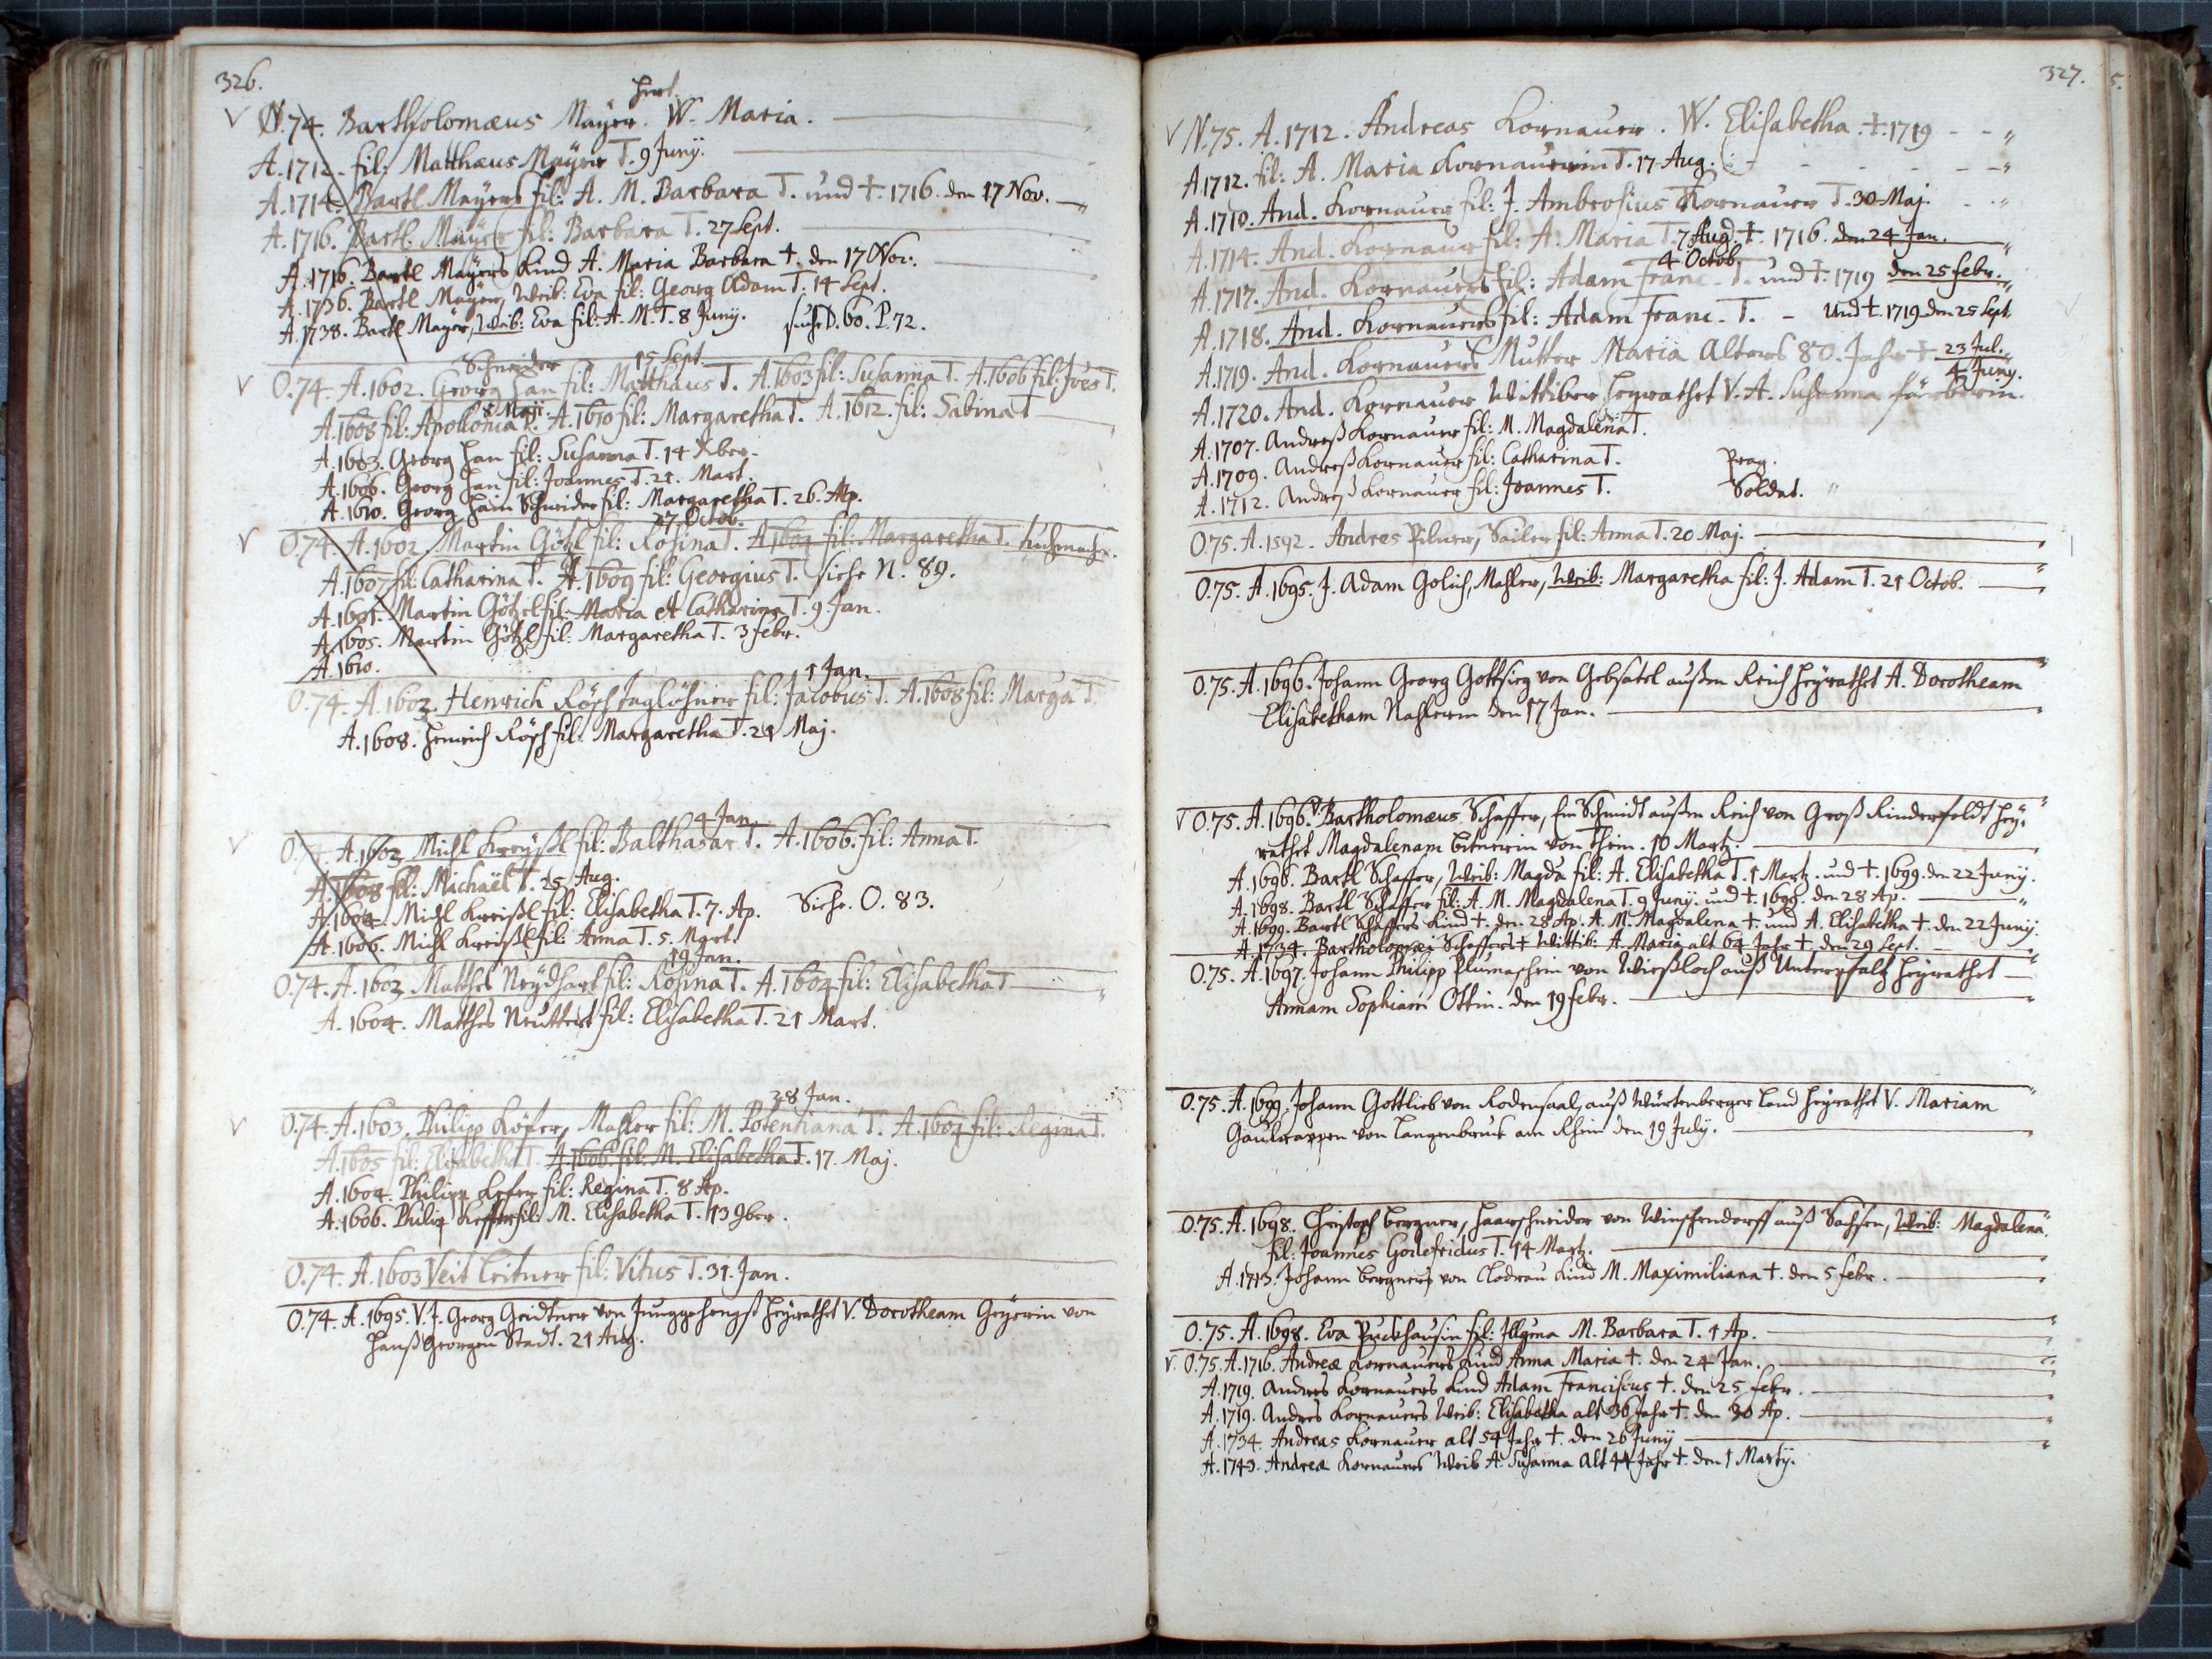 326.
Hert.
N. 74. Bartholomæus Mayer. W. Maria.
A. 1712. fil: Matthæus Mayer T. 9 Junÿ.
A. 1714. Bartl Mayers fil: A. M. Barbara T. und †. 1716. den 17 Nov.
A. 1716. Bartl. Mayer fil: Barbara T. 27 Sept.
A. 1716. Bartl Mayers Kind A. Maria Barbara †. den 17 Nov:
A. 1736. Bartl Mayer, Weib: Eva fil: Georg Adam T. 14 Sept.
A. 1738. Bartl Mayer, Weib: Eva fil: A. M. T. 8 Junÿ. suche D. 60. P. 72.
Schneider 15 Sept.
O. 74. A. 1602. Georg Han fil: Matthäus T. A. 1603 fil: Susanna T. A. 1606 fil: Joes T.
8 Maji.
A. 1608 fil: Apollonia T. A. 1610 fil: Margaretha T. A. 1612. fil: Sabina T
A. 1603. Georg Han fil: Susanna T. 14 Xber.
A. 1606. Georg Han fil: Joannes T. 21. Mart.
A. 1610. Georg Hain Schneider fil: Margaretha T. 26. Ap.
27 Octob.
O. 74. A. 1602. Martin Götzl fil: Rosina T. A 1604 fil: Margaretha T. Tuchmacher.
A. 1607 fil: Catharina T. A. 1609 fil: Georgius T. Siehe N. 89.
A. 1601. Martin Götzel fil: Maria et Catharina T. 9. Jan.
A. 1605. Martin Götzl fil: Margaretha T. 3 febr.
A. 1610.
1 Jan.
O. 74. A. 1603. Henrich Rösch taglöhner fil: Jacobus T. A. 1608 fil: Marga T.
A. 1608. Henrich Rösch fil: Margaretha T. 21 Maj.
4 Jan.
O. 74. A. 1603 Michl Kreyßl fil: Balthasar T. A. 1606. fil: Anna T.
A. 1608 fil: Michaël T. 25 Aug.
A. 1604. Michl Kreißl fil: Elisabetha T. 7. Ap. Siehe. O. 83.
A. 1606. Michl Kreißl fil: Anna T. 5. Mart.
19 Jan.
O. 74. A. 1603 Matthes Neydhart fil: Rosina T. A. 1604 fil: Elisabetha T
A. 1604. Matthes Neuttert fil: Elisabetha T. 21 Mart.
28 Jan.
O. 74. A. 1603. Philipp Köfer, Mahler fil: M. Potentiana T. A. 1604 fil: Regina T.
A. 1605 fil: Elisabetha T. A. 1606. fil: M. Elisabetha T. 17. Maj.
A. 1604. Philipp Kefer fil: Regina T. 8 Ap.
A. 1606. Philip Keffer fil: M. Elisabetha T. 13 9ber.
O. 74. A. 1603 Veit Leitner fil: Vitus T. 31. Jan.
O. 74. A. 1695. V. J. Georg Geidtner von Junggehengst heyrathet V. Dorotheam Geyerin von
Hanß Georgen Stadt. 21 Aug.
327.
N. 75. A. 1712. Andreas Kornauer. W. Elisabetha. †. 1719
A. 1712. fil: A. Maria Kornauerin T. 17 Aug.
A. 1710. And. Kornauer fil: J. Ambrosius Kornauer T. 30 Maj.
A. 1714. And. Kornauer fil: A. Maria T. 7 Aug. †. 1716. den 24 Jan.
4 Octob.
A. 1717. And. Kornauers fil: Adam Franc. T. und †. 1719 den 25 febr.
A. 1718. And. Kornauers fil: Adam Franc. T. - und †. 1719 den 25 Sept
A. 1719. And. Kornauers Mutter Maria Alters 80. Jahr † 23 Jul.
4 Juny.
A. 1720. And. Kornauer Wittiber heyrathet V. A. Susanna färberin.
A. 1707. Andreß Kornauer fil: M. Magdalena T.
A. 1709. Andreß Kornauer fil: Catharina T. Prag.
A. 1712. Andreß Kornauer fil: Joannes T. Soldat.
O. 75. A. 1592. Andres Pilner, Sailer fil: Anna T. 20 Maj.
O. 75. A. 1695. J. Adam Golich, Mahler, Weib: Margaretha fil: J. Adam T. 21 Octob.
O. 75. A. 1696. Johann Georg Gottsieg von Gebsatel außem Reich heyrathet A. Dorotheam
Elisabetham Nahlerin den 17 Jan.
O. 75. A. 1696. Bartholomæus Schaffer, ein Schmidt außem Reich von Groß Rinderfeldt hey-
rathet Magdalenam Bitnerin von Thein. 10 Martz.
A. 1696. Bartl Schaffer, Weib: Magda fil: A. Elisabetha T. 1 Martz. und †. 1699. den 22 Juny.
A. 1698. Bartl Schaffer fil: A. M. Magdalena T. 9 Juny. und †. 1699. den 28 Ap.
A. 1699. Bartl Schaffers Kind †. den 28 Ap. A. M. Magdalena †. und A. Elisabetha †. den 22 Junÿ.
A. 1734. Bartholomæi Schaffers † Wittib: A. Maria alt 64 Jahr †. den 29 Sept.
O. 75. A. 1697. Johann Philipp Blumaschein von Wießloch auß Unterpfaltz heyrathet
Annam Sophiam Ottin. den 19 febr.
O. 75. A. 1699. Johann Gottlieb von Rodensaal, auß Würtenberger Land heyrathet V. Mariam
Gaulrappen von Langenbruck am Rhein den 19 July.
O. 75. A. 1698. Christoph Bergner, Haarschneider von Winschendorff auß Sachsen, Weib: Magdalena.
fil: Joannes Godefridus T. 14 Martz.
A. 1713. Johann Bergners von Chodrau Kind M. Maximiliana †. den 5 febr.
O. 75. A. 1698. Eva Puckhausin fil: Illgma M. Barbara T. 1 Ap.
O. 75. A. 1716. Andreæ Kornauers Kind Anna Maria †. den 24 Jan.
A. 1719. Andres Kornauers Kind Adam Franciscus †. den 25 febr.
A. 1719. Andres Kornauers Weib: Elisabetha alt 36 Jahr †. den 30 Ap.
A. 1734. Andreas Kornauer alt 54 Jahr †. den 26 Juny
A. 1743. Andreæ Kornauers Weib A. Susanna Alt 44 Jahr †. den 1 Martÿ.